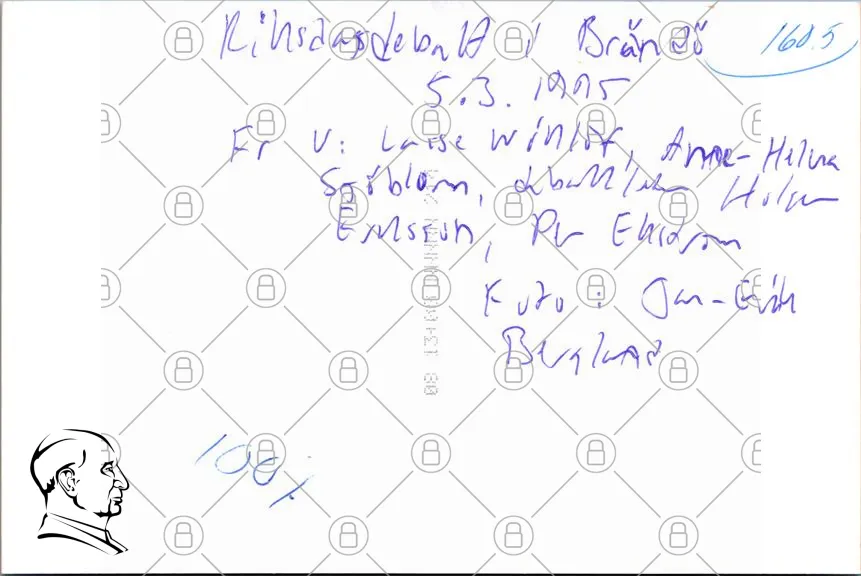 Riksdagsdebatt i Brändö 160.5
5.3.1995
Fr v: Lasse Wiklöf, Anne-Helena
Sjöblom, debattledare Holger
Eriksson, Per Ekström
Foto: Jan-Erik
Berglund
100%